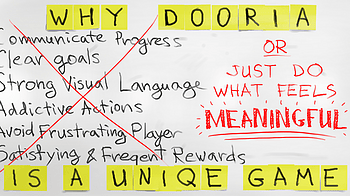 WHY DOORIA
Communicate Progress
Clear goals
Strong Visual Language
Addictive Actions
Avoid Frustrating Player
Satisfying & Freqent Rewards
OR
JUST DO
WHAT FEELS
MEANINGFUL
IS A UNIQE GAME